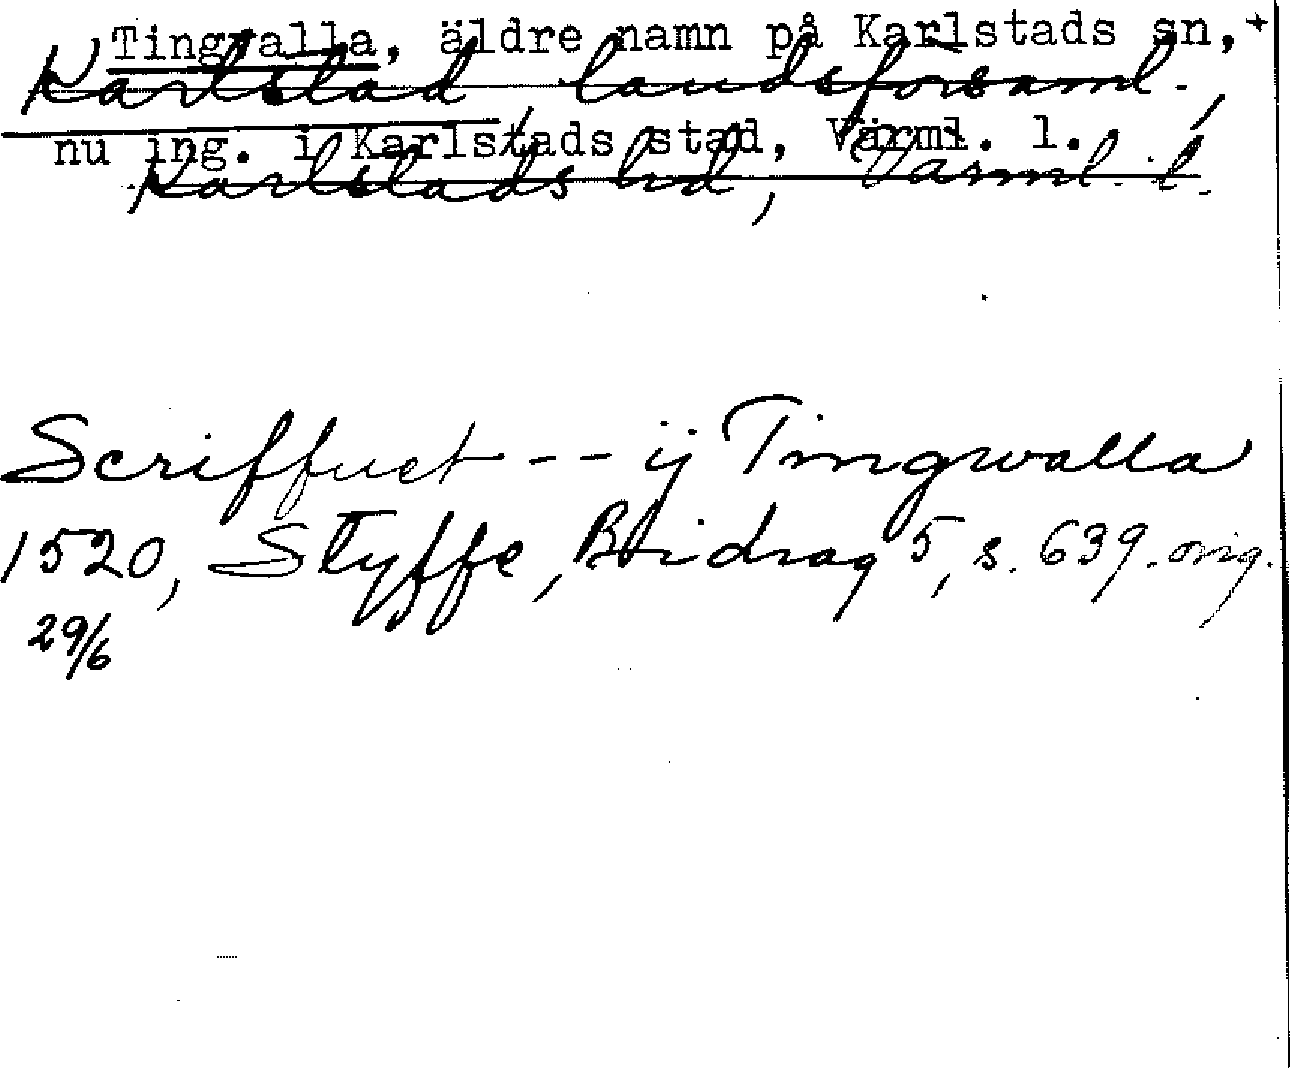 Tingvalla, äldre namn på Karlstads sn,+
Karlstad landsförsaml.,
nu ing. i Karlstads stad, Värml. l.
Karlstads hd, Värml. l.
Scriffuet -- ij Tingwalla
1520, Styffe, Bidrag 5, s. 639. orig.
29/6